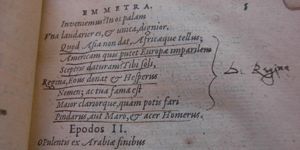 EMMETRA. 5
Inveniemus? in os palam
Vna laudarier es, & unica, dignior.
Quod Asia non dat, Africaque tellus;
Americam quis putet Europæ imparilem
Sceptris daturam? Tibi soli,
Regina, Eous donat & Hesperus
Nomen; ac tua fama est
Maior clariorque, quam potis fari
Pindarus aut Maro, & acer Homerus.
Regina
Epodos II.
OPulentis ex Arabiæ finibus